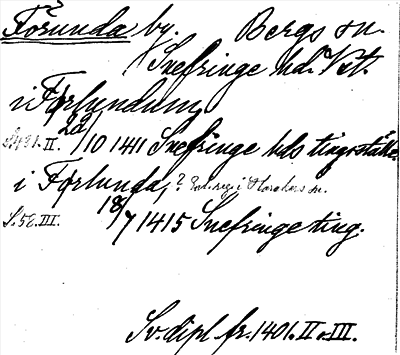 Förunda by. Bergs sn.
Snefringe hd. Vst.
i Forlundum
S. 431. II. 22/10 1411 Snefringe hds tingsställe
i Forlunda, ? Enl. reg. i
S. 52. III. 18/7 1415 Snefringe ting.
Sv. dipl. fr. 1401. II o. III.